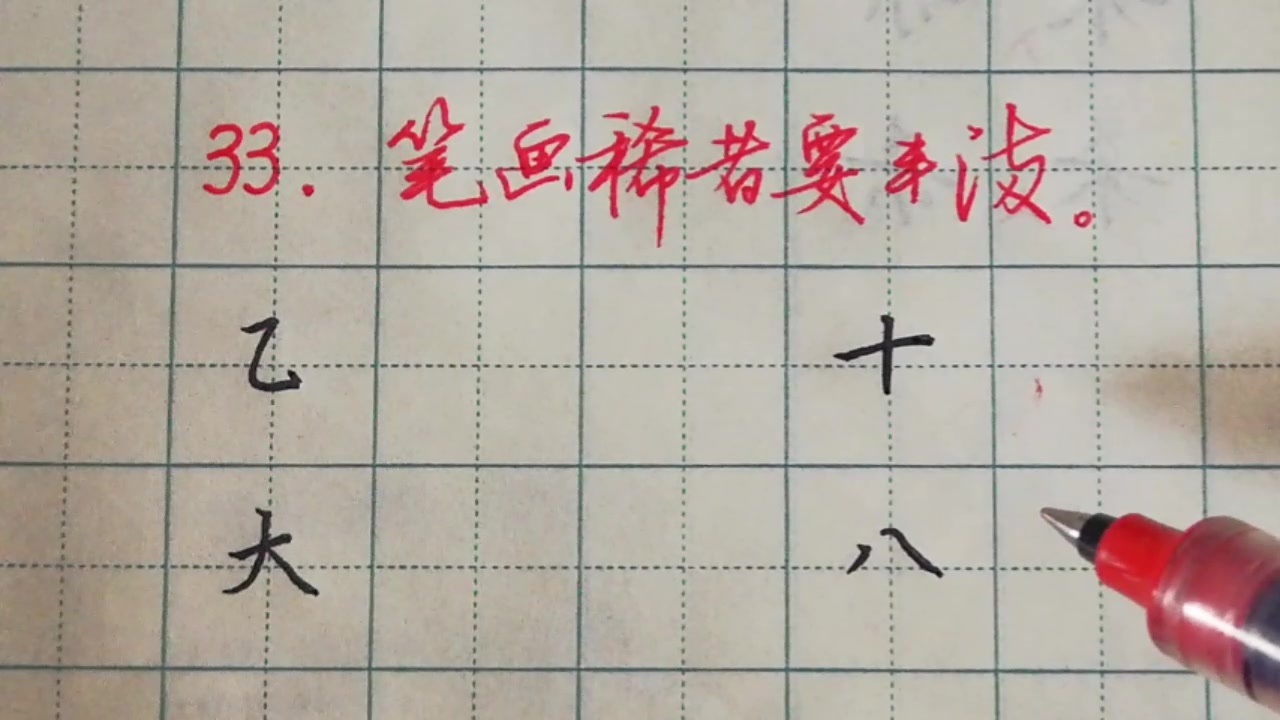 33. 笔画稀者要丰泼。
乙 十
大 八